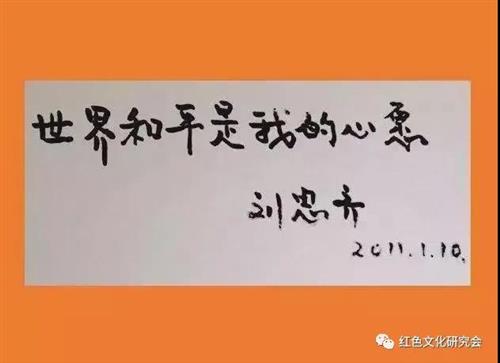 世界和平是我的心愿
刘忠齐
2011.1.10.
红色文化研究会